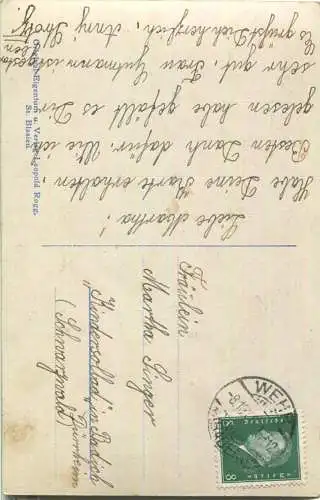 Liebe Martha!
Habe Deine Karte erhalten,
Besten Dank dafür. Wie ich
gelesen habe gefällt es Dir
sehr gut. Frau Gutmann ist
Es grüßt Dich herzlich, Anny
Eigentum u. Verlag Leopold Rogg,
St. Blasien
Fräulein
Martha Singer
Kindersolbad in Badisch
Dürrheim
(Schwarzwald)
WEHR
8 8